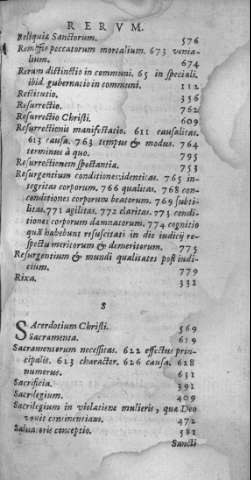 RERVM.
Reliquia Sanctorum. 576
Remissio peccatorum mortalium. 673 venia-
lium. 674
Rerum distinctio in communi. 65 in speciali.
ibid. gubernatio in communi. 112
Restitutio. 356
Resurrectio. 762
Resurrectio Christi. 609
Resurrectionis manifestatio. 611 causalitas.
613 causa. 763 tempus & modus. 764
terminus à quo. 795
Resurrectionem spectantia. 753
Resurgentium conditiones: identitas. 765 in-
tegritas corporum. 766 qualitas. 768 con-
conditiones corporum beatorum. 769 subti-
litas. 771 agilitas. 772 claritas. 773 condi-
tiones corporum damnatorum. 774 cognitio
quã habebunt resuscitati in die iudicij re-
spectu meritorum & demeritorum. 775
Resurgentium & mundi qualitates post iudi-
cium. 779
Rixa. 332
S
SAcerdotium Christi. 569
Sacramenta. 619
Sacramentorum necessitas. 622 effectus prin-
cipalis. 623 character. 626 causa. 628
numerus. 631
Sacrificia. 391
Sacrilegium. 409
Sacrilegium in violatione mulieris, quæ Deo
vouit continentiam. 472
Saluatoris conceptio. 582
Sancti